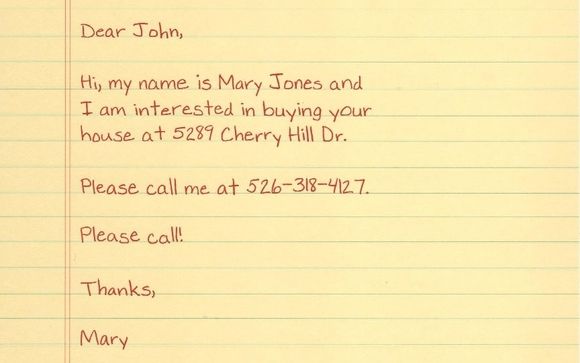 Dear John,
Hi, my name is Mary Jones and
I am interested in buying your
house at 5289 Cherry Hill Dr.
Please call me at 526-318-4127.
Please call!
Thanks,
Mary